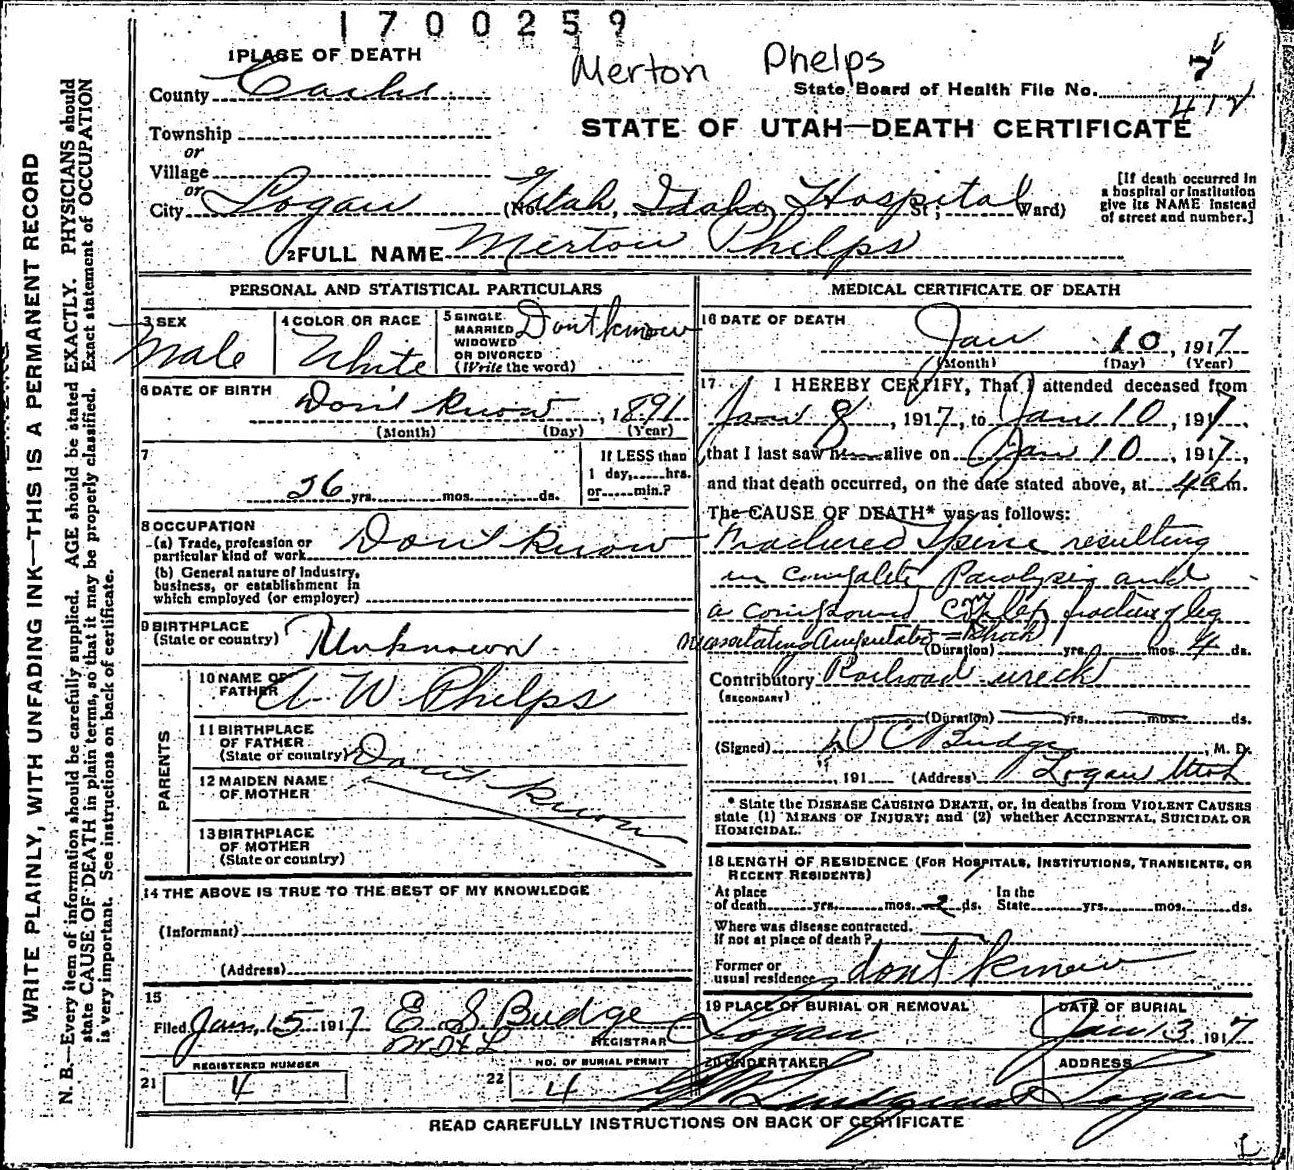 1700259
1 PLACE OF DEATH
Merton Phelps
7
County Cache
State Board of Health File No.
Township
STATE OF UTAH—DEATH CERTIFICATE
or
Village
or
City Logan (No. Utah, Idaho Hospital St; Ward)
[If death occurred in
a hospital or institution
give its NAME instead
of street and number.]
2 FULL NAME Merton Phelps
PERSONAL AND STATISTICAL PARTICULARS
3 SEX
Male
4 COLOR OR RACE
White
5 SINGLE
MARRIED
WIDOWED
OR DIVORCED
(Write the word)
Dont know
6 DATE OF BIRTH
Don't know, 1891
(Month) (Day) (Year)
7
26 yrs. mos. ds.
If LESS than
1 day, hrs.
or min.?
8 OCCUPATION
(a) Trade, profession or
particular kind of work Don't know
(b) General nature of industry,
business, or establishment in
which employed (or employer)
9 BIRTHPLACE
(State or country) Unknown
PARENTS
10 NAME OF
FATHER A W Phelps
11 BIRTHPLACE
OF FATHER
(State or country) Don't know
12 MAIDEN NAME
OF MOTHER
13 BIRTHPLACE
OF MOTHER
(State or country)
14 THE ABOVE IS TRUE TO THE BEST OF MY KNOWLEDGE
(Informant)
(Address)
15
Filed Jan, 15 1917 E. S. Budge
REGISTRAR
REGISTERED NUMBER
21 4
NO. OF BURIAL PERMIT
22 4
MEDICAL CERTIFICATE OF DEATH
16 DATE OF DEATH
Jan 10, 1917
(Month) (Day) (Year)
17 I HEREBY CERTIFY, That I attended deceased from
Jan 8, 1917, to Jan 10, 1917,
that I last saw him alive on Jan 10, 1917,
and that death occurred, on the date stated above, at 4 a m.
The CAUSE OF DEATH* was as follows:
Fractured Spine resulting
in complete Paralysis and
a compound fracture of leg
(Duration) yrs. mos. 4 ds.
Contributory Railroad wreck
(SECONDARY)
(Duration) yrs. mos. ds.
(Signed) D C Budge, M. D.
, 191 (Address) Logan Utah
* State the DISEASE CAUSING DEATH, or, in deaths from VIOLENT CAUSES
state (1) MEANS OF INJURY; and (2) whether ACCIDENTAL, SUICIDAL OR
HOMICIDAL.
18 LENGTH OF RESIDENCE (FOR HOSPITALS, INSTITUTIONS, TRANSIENTS, OR
RECENT RESIDENTS)
At place
of death yrs. mos. 2 ds.
In the
State yrs. mos. ds.
Where was disease contracted,
if not at place of death?
Former or
usual residence dont know
19 PLACE OF BURIAL OR REMOVAL
Logan
DATE OF BURIAL
Jan 13, 1917
20 UNDERTAKER
ADDRESS
Logan
READ CAREFULLY INSTRUCTIONS ON BACK OF CERTIFICATE
WRITE PLAINLY, WITH UNFADING INK—THIS IS A PERMANENT RECORD
N. B.—Every item of information should be carefully supplied. AGE should be stated EXACTLY. PHYSICIANS should
state CAUSE OF DEATH in plain terms, so that it may be properly classified. Exact statement of OCCUPATION
is very important. See instructions on back of certificate.